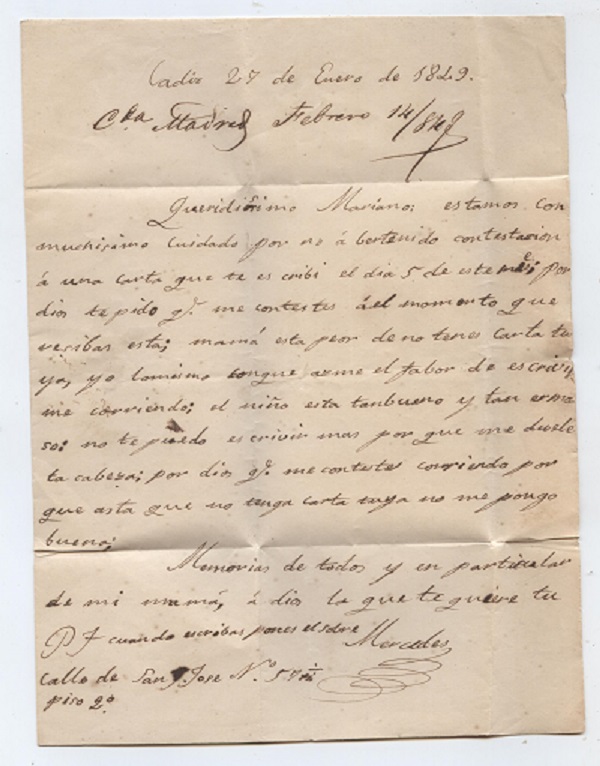 Cadiz 27 de Enero de 1849.
Cda Madrid Febrero 14/849
Queridisimo Mariano: estamos con
muchisimo cuidado por no á bertenido contestacion
á una carta que te es cribi el dia 5 de este mes; por
dios te pido qe. me contestes ál momento que
recibas esta; mamá esta peor de no tener carta tu
ya, yo lomismo conque asme el fabor de escrivir
me corriendo; el niño esta tanbueno y tan ermo
so; no te puedo escrivir mas por que me duele
la cabeza; por dios qe. me contestes corriendo por
que asta que no tenga carta tuya no me pongo
buena;
Memorias de todos y en particular
de mi mamá, á dios la que te quiere tu
Mercedes
P cuando escribas pones el sobre
calle de San Jose No. 57
piso 2o